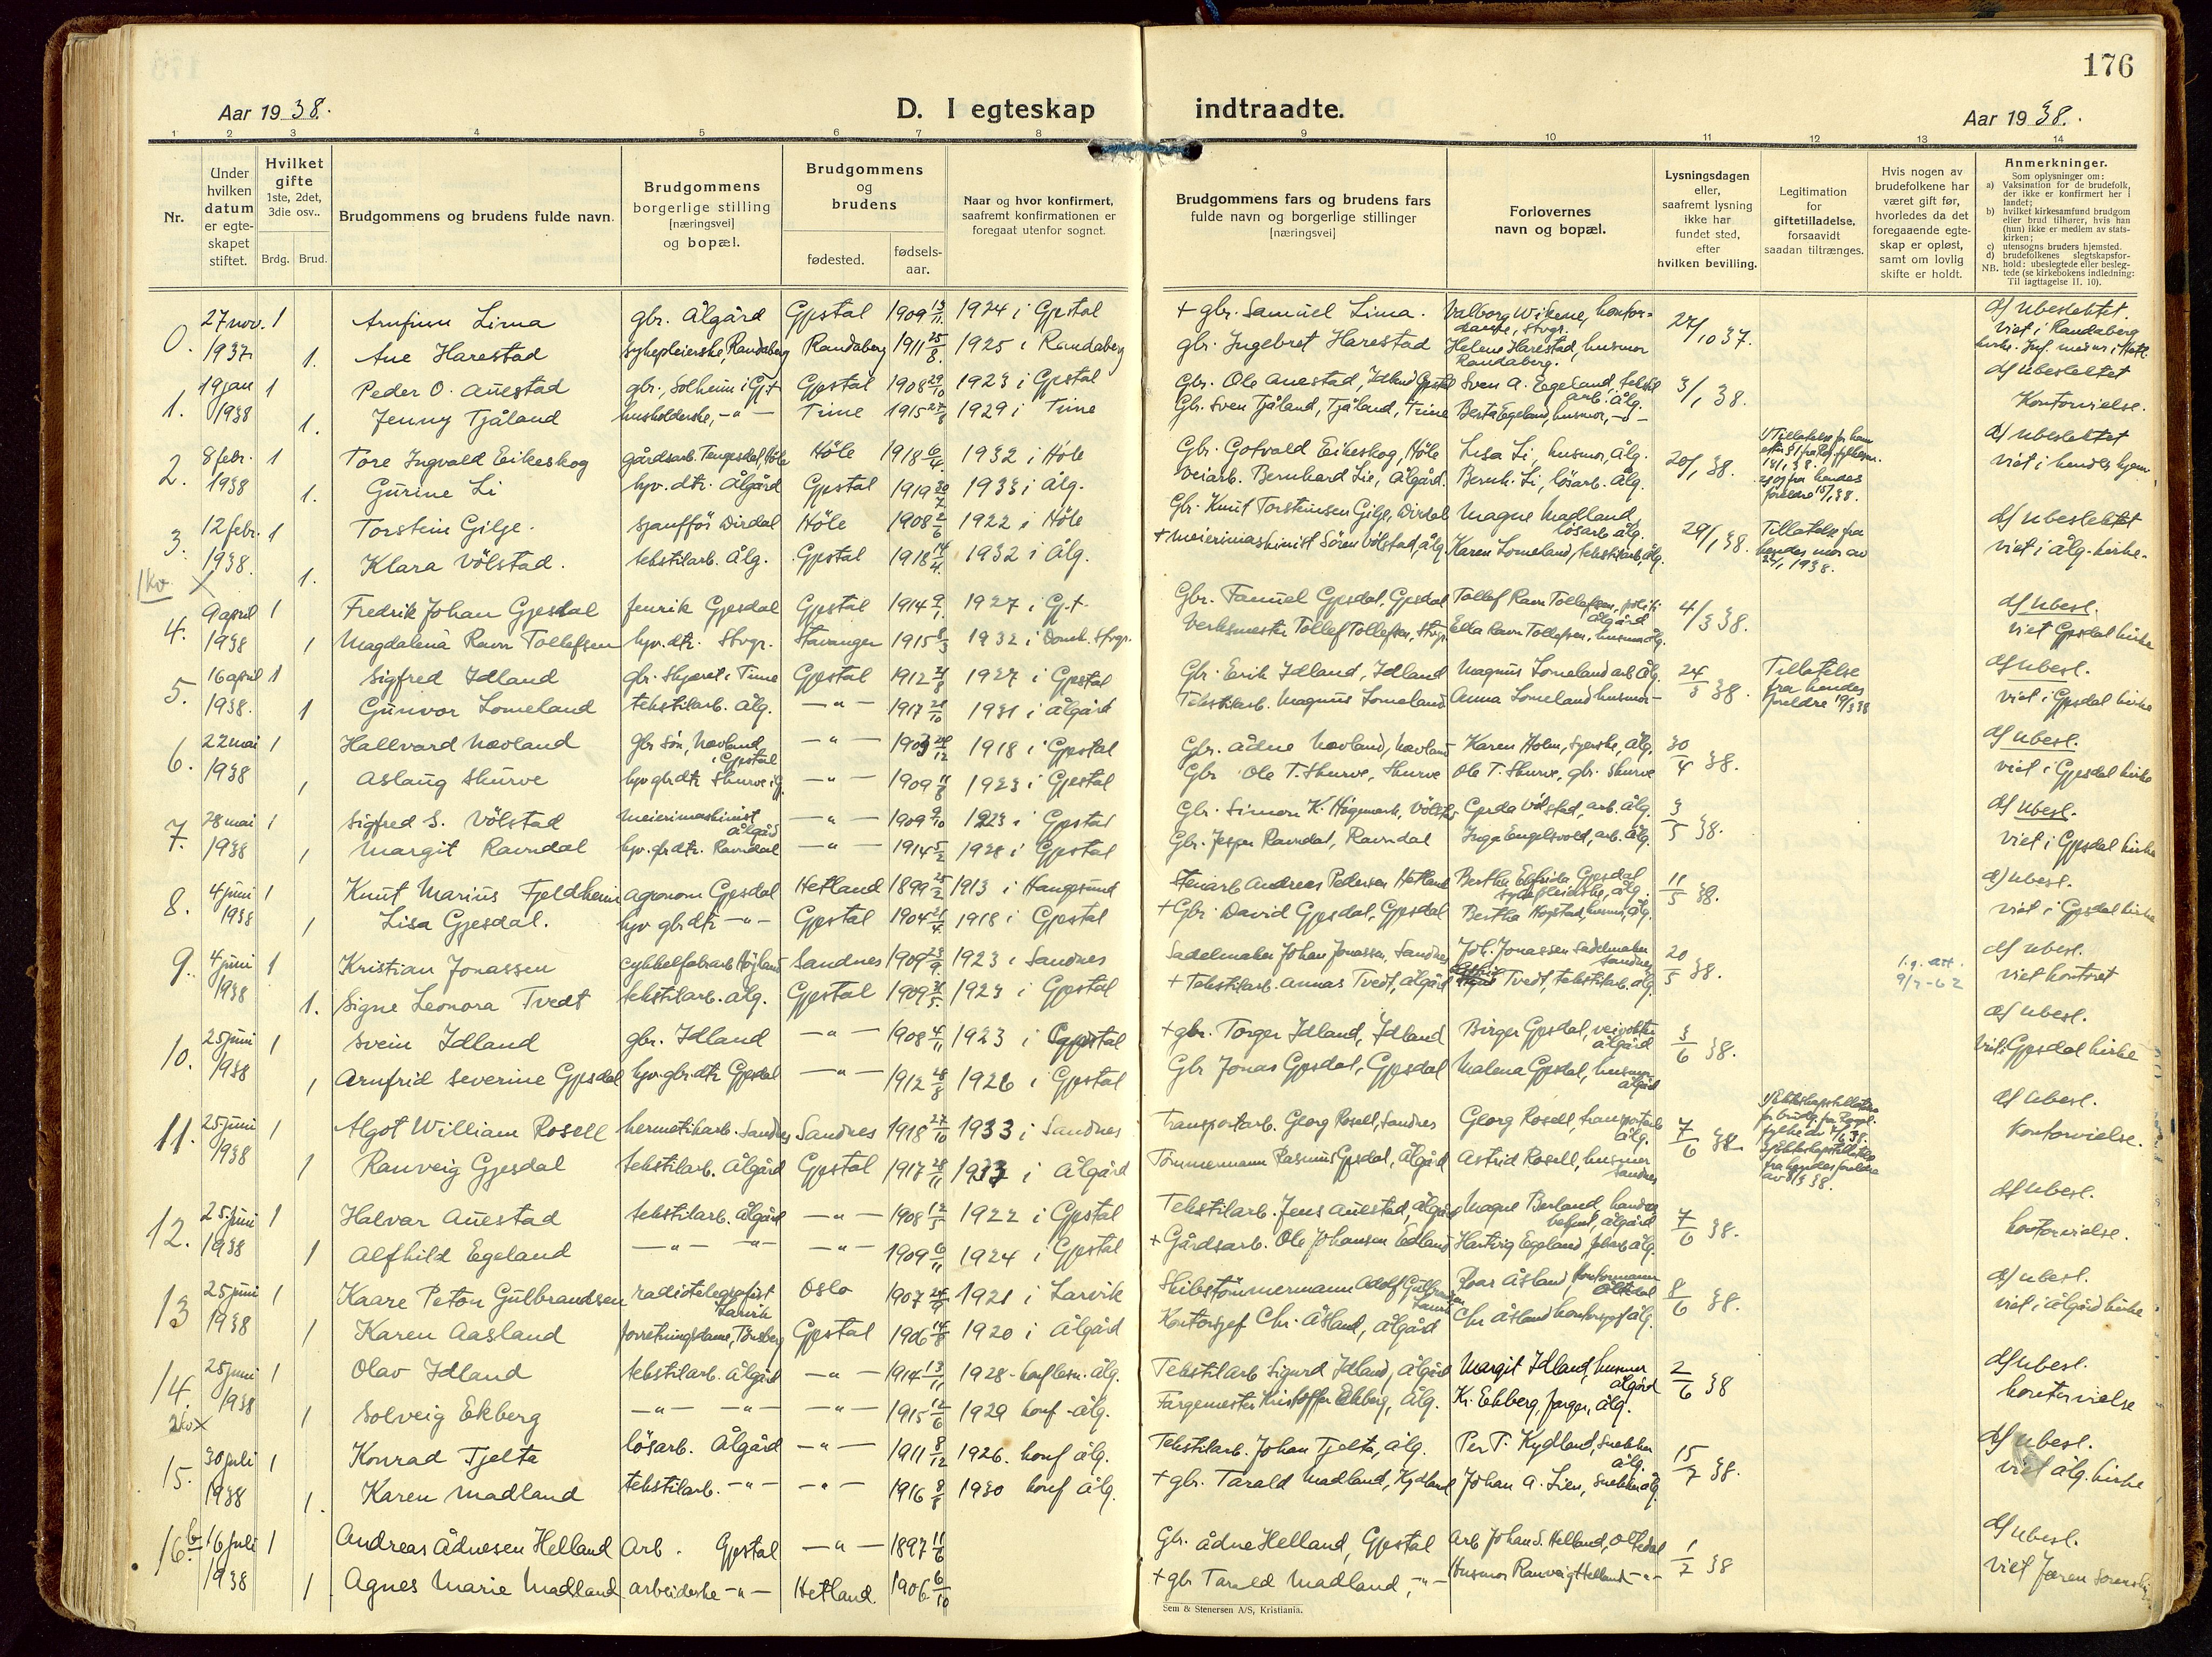 176
Aar 1938.
D. I egteskap indtraadte.
Aar 1938.
1 2 3 4 5 6 7 8 9 10 11 12 13 14
Nr.
Under hvilken datum er egteskapet stiftet.
Hvilket gifte 1ste, 2det, 3die osv..
Brdg. Brud.
Brudgommens og brudens fulde navn.
Brudgommens borgerlige stilling [næringsvei] og bopæl.
Brudgommens og brudens
fødested. fødsels-aar.
Naar og hvor konfirmert, saafremt konfirmationen er foregaat utenfor sognet.
Brudgommens fars og brudens fars fulde navn og borgerlige stillinger [næringsvei]
Forlovernes navn og bopæl.
Lysningsdagen eller, saafremt lysning ikke har fundet sted, efter hvilken bevilling.
Legitimation for giftetilladelse, forsaavidt saadan tiltrænges.
Hvis nogen av brudefolkene har været gift før, hvorledes da det foregaaende egteskap er opløst, samt om lovlig skifte er holdt.
Anmerkninger.
Som oplysninger om:
a) Vaksination for de brudefolk, der ikke er konfirmert her i landet;
b) hvilket kirkesamfund brudgom eller brud tilhører, hvis han (hun) ikke er medlem av statskirken;
c) utensogns bruders hjemsted.
d) brudefolkenes slegtskapsforhold: ubeslegtede eller beslegtede (se kirkebokens indledning: Til iagttagelse II. 10).
NB.
0. 27 nov. 1 Arnfinn Lima gbr. Ålgård Gjestal 1909 13/11 1924 i Gjestal + gbr. Samuel Lima. Valborg Wikene, kontordame, Stvgr. 27/10 37. d/ ubeslektet.
1937 1. Ane Harestad sykepleierske, Randaberg Randaberg 1911 25/8 1925 i Randaberg gbr. Ingebret Harestad Helene Harestad, husmor Randaberg. viet i Randaberg kirke.
1. 19 jan 1 Peder O. Auestad gbr., Solheim i Gj.t Gjestal 1908 29/10 1923 i Gjestal Gbr. Ole Auestad, Idland Gjestal Sven A. Egeland, tekstilarb. Ålg. 3/1 38. d/ ubeslektet
1938 1. Jenny Tjåland husholderske, -"- Time 1915 27/8 1929 i Time Gbr. Sven Tjåland, Tjåland, Time Berta Egeland, husmor, -"- Kontorvielse.
2. 8 febr. 1 Tore Ingvald Eikeskog gårdsarb. Tengesdal, Høle Høle 1918 6/4 1932 i Høle Gbr. Gotvald Eikeskog, Høle Lisa Li, husmor, Ålg. 20/1 38. d/ ubeslektet
1938 1. Gurine Li hjv. dtr. Ålgård Gjestal 1919 30/7 1933 i Ålg. Veiarb. Bernhard Lie, Ålgård. Bernh. Li, lösarb. Ålg. viet i hendes hjem
3. 12 febr. 1 Torstein Gilje. sjafför Dirdal Høle 1908 2/6 1922 i Høle Gbr. Knut Torsteinsen Gilje, Dirdal Magne Madland, lösarb Ålg. 29/1 38. Tillatelse fra hendes mor av 24/1 1938. d/ ubeslektet
1938. 1. Klara Völstad. tekstilarb. Ålg. Gjestal 1918 14/4 1932 i Ålg. + meierimaskinist Sören Völstad, Ålg. Karen Lomeland, tekstilarb, Ålg. viet i Ålg. kirke.
1 kv. X
4. 9 april 1 Fredrik Johan Gjesdal fenrik Gjesdal Gjestal 1914 9/1 1927 i Gj.t. Gbr. Samuel Gjesdal, Gjesdal Tollef Ravn Tollefsen, politi Ålgård 4/3 38. d/ ubesl.
1938 1 Magdalena Ravn Tollefsen hjv. dtr. Stvgr. Stavanger 1915 8/3 1932 i Domk. Stvgr. Verksmester Tollef Tollefsen, Stvgr. Ella Ravn Tollefsen, husmor Ålg. viet Gjesdal kirke
5. 16 april 1 Sigfred Idland gbr. Skjæret i Time Gjestal 1912 21/8 1927 i Gjestal Gbr. Erik Idland, Idland Magnus Lomeland arb. Ålg. 24/3 38. Tillatelse fra hendes foreldre 19/3 38 d/ ubesl.
1938. 1 Gunvor Lomeland tekstilarb. Ålg. -"- 1917 21/10 1931 i Ålgård Tekstilarb. Magnus Lomeland Anna Lomeland husmor - viet i Gjesdal kirke
6. 22 mai 1 Hallvard Næveland gbr. sön, Nævland i Gjestal -"- 1903 24/12 1918 i Gjestal Gbr. Ådne Nævland, Nævland Karen Holm, syerske, Ålg. 30/4 38. d/ ubesl.
1938 1 Aslaug Skurve hjv. gbr. dtr. Skurve i Gj. -"- 1909 11/8 1923 i Gjestal Gbr Ole T. Skurve, Skurve Ole T. Skurve, gbr. Skurve viet i Gjesdal kirke
7. 28 mai 1 Sigfred S. Völstad meierimaskinist Ålgård -"- 1909 9/10 1923 i Gjestal Gbr. Simon K. Høgmark, Völstad Gerda Völstad, arb. Ålg. 3/5 38. d/ ubesl.
1938 1 Margit Ravndal hjv. gbr. dtr. Ravndal -"- 1914 5/2 1928 i Gjestal Gbr. Jesper Ravndal, Ravndal Inga Engelsvold, arb. Ålg. viet i Gjesdal kirke
8. 4 juni 1 Knut Marius Fjeldheim agronom Gjesdal Hetland 1899 25/2 1913 i Haugesund Stenarb Andreas Pedersen Hetland Bertha Elfrida Gjesdal sykepleierske, Ålg. 11/5 38. d/ ubesl.
1938 1 Lisa Gjesdal. hjv gbr. dtr. -"- Gjestal 1904 21/4 1918 i Gjestal + Gbr. David Gjesdal, Gjesdal Bertha Hogstad, husmor, Ålg. viet i Gjesdal kirke
9. 4 juni 1 Kristian Jonassen cykkelfabrarb Höyland Sandnes 1909 23/9 1923 i Sandnes Sadelmaker Johan Jonassen, Sandnes Joh. Jonassen Sadelmaker Sandnes 20/5 38. d/ ubesl.
1938 1. Signe Leonora Tvedt tekstilarb. Ålg. Gjestal 1909 31/5 1923 i Gjestal + Tekstilarb. Annas Tvedt, Ålgård Tvedt, tekstilarb. Ålg. 9/7-62 viet kontoret
10. 25 juni 1 Svein Idland gbr. Idland -"- 1908 4/11 1923 i Gjestal + gbr. Torger Idland, Idland Birger Gjesdal, veivokter Ålgård 3/6 38. d/ ubesl.
1938 1 Arnfrid Severine Gjesdal hjv. gbr. dtr. Gjesdal -"- 1912 28/8 1926 i Gjestal Gbr Jonas Gjesdal, Gjesdal Malena Gjesdal, husmor Ålgård viet i Gjesdal kirke
11. 25 juni 1 Algot William Rosell hermetikarb. Sandnes Sandnes 1918 27/10 1933 i Sandnes Transportarb. Georg Rosell, Sandnes Georg Rosell, transportarb Ålg. 7/6 38 d/ ubesl.
1938 1 Ranveig Gjesdal tekstilarb. Ålgård Gjestal 1917 28/11 1933 i Ålgård Tömmermann Rasmus Gjesdal, Ålgård Astrid Rosell, husmor Sandnes Kontorvielse.
12. 25. juni 1 Halvar Auestad tekstilarb. Ålgård -"- 1908 12/5 1922 i Gjestal Tekstilarb. Jens Auestad, Ålgård Magne Berland, handelsbetjent, Ålgård 7/6 38. d/ ubesl.
1938 1 Alfhild Egeland -"- -"- -"- 1909 6/11 1924 i Gjestal + Gårdsarb. Ole Johansen Edland Hartvig Egeland fabrarb Ålg. kontorvielse.
13 25 juni 1 Kaare Peton Gulbrandsen radiotelegrafist Larvik Oslo 1907 24/9 1921 i Larvik Skibstömmermann Adolf Gulbrandsen Larvik Roar Åsland kontormann 8/6 38. d/ ubesl.
1938 1 Karen Aasland forretningsdame, Tönsberg Gjestal 1906 14/8 1920 i Ålgård Kontorsjef Chr. Åsland, Ålgård Chr Åsland kontorsjef Ålg. viet i Ålgård kirke
14. 25 juni 1 Olav Idland tekstilarb. Ålgård -"- 1914 13/11 1928 - Ålg. Tekstilarb Sigurd Idland, Ålgård Margit Idland, husmor Ålgård 2/6 38 d/ ubesl.
1938 1 Solveig Ekberg -"- -"- -"- 1915 12/6 1929 konf - Ålg. Fargemester Kristoffer Ekberg, Ålg. Kr. Ekberg, farger, Ålg. kontorvielse
2 kv X
15. 30 juli 1 Konrad Tjelta lösarb. Ålgård -"- 1911 8/12 1926. konf Ålg. Tekstilarb. Johan Tjelta, Ålg. Per T. Kydland, Snekker Ålg. 15/7 38. d/ ubesl.
1938 1. Karen Madland tekstilarb. -"- -"- 1916 8/5 1930 konf Ålg. + gbr. Tarald Madland, Kydland Johan A. Lien, Snekker Ålg. viet Ålg. kirke
16 b. 16 juli 1 Andreas Ådnesen Helland Arb. Gjestal -"- 1897 11/6 Gbr. Ådne Helland, Gjestal Arb Johan S. Helland, Oltedal 1/7 38 d/ ubesl.
1938 1 Agnes Marie Madland arbeiderske -"- Hetland 1906 6/10 + gbr Tarald Madland, -"- Husmor Ranveig Helland -"- viet Jæren
Sem & Stenersen A/S, Kristiania.